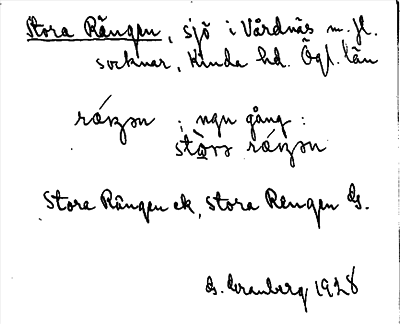 Stora Rängen, sjö i Vårdnäs m. fl.
socknar, Kinda hd. Ögl. län
ráŋən ; ngn gång :
ráŋən
Stora Rängen ek, Stora Rengen Gs.
G. Granberg 1928